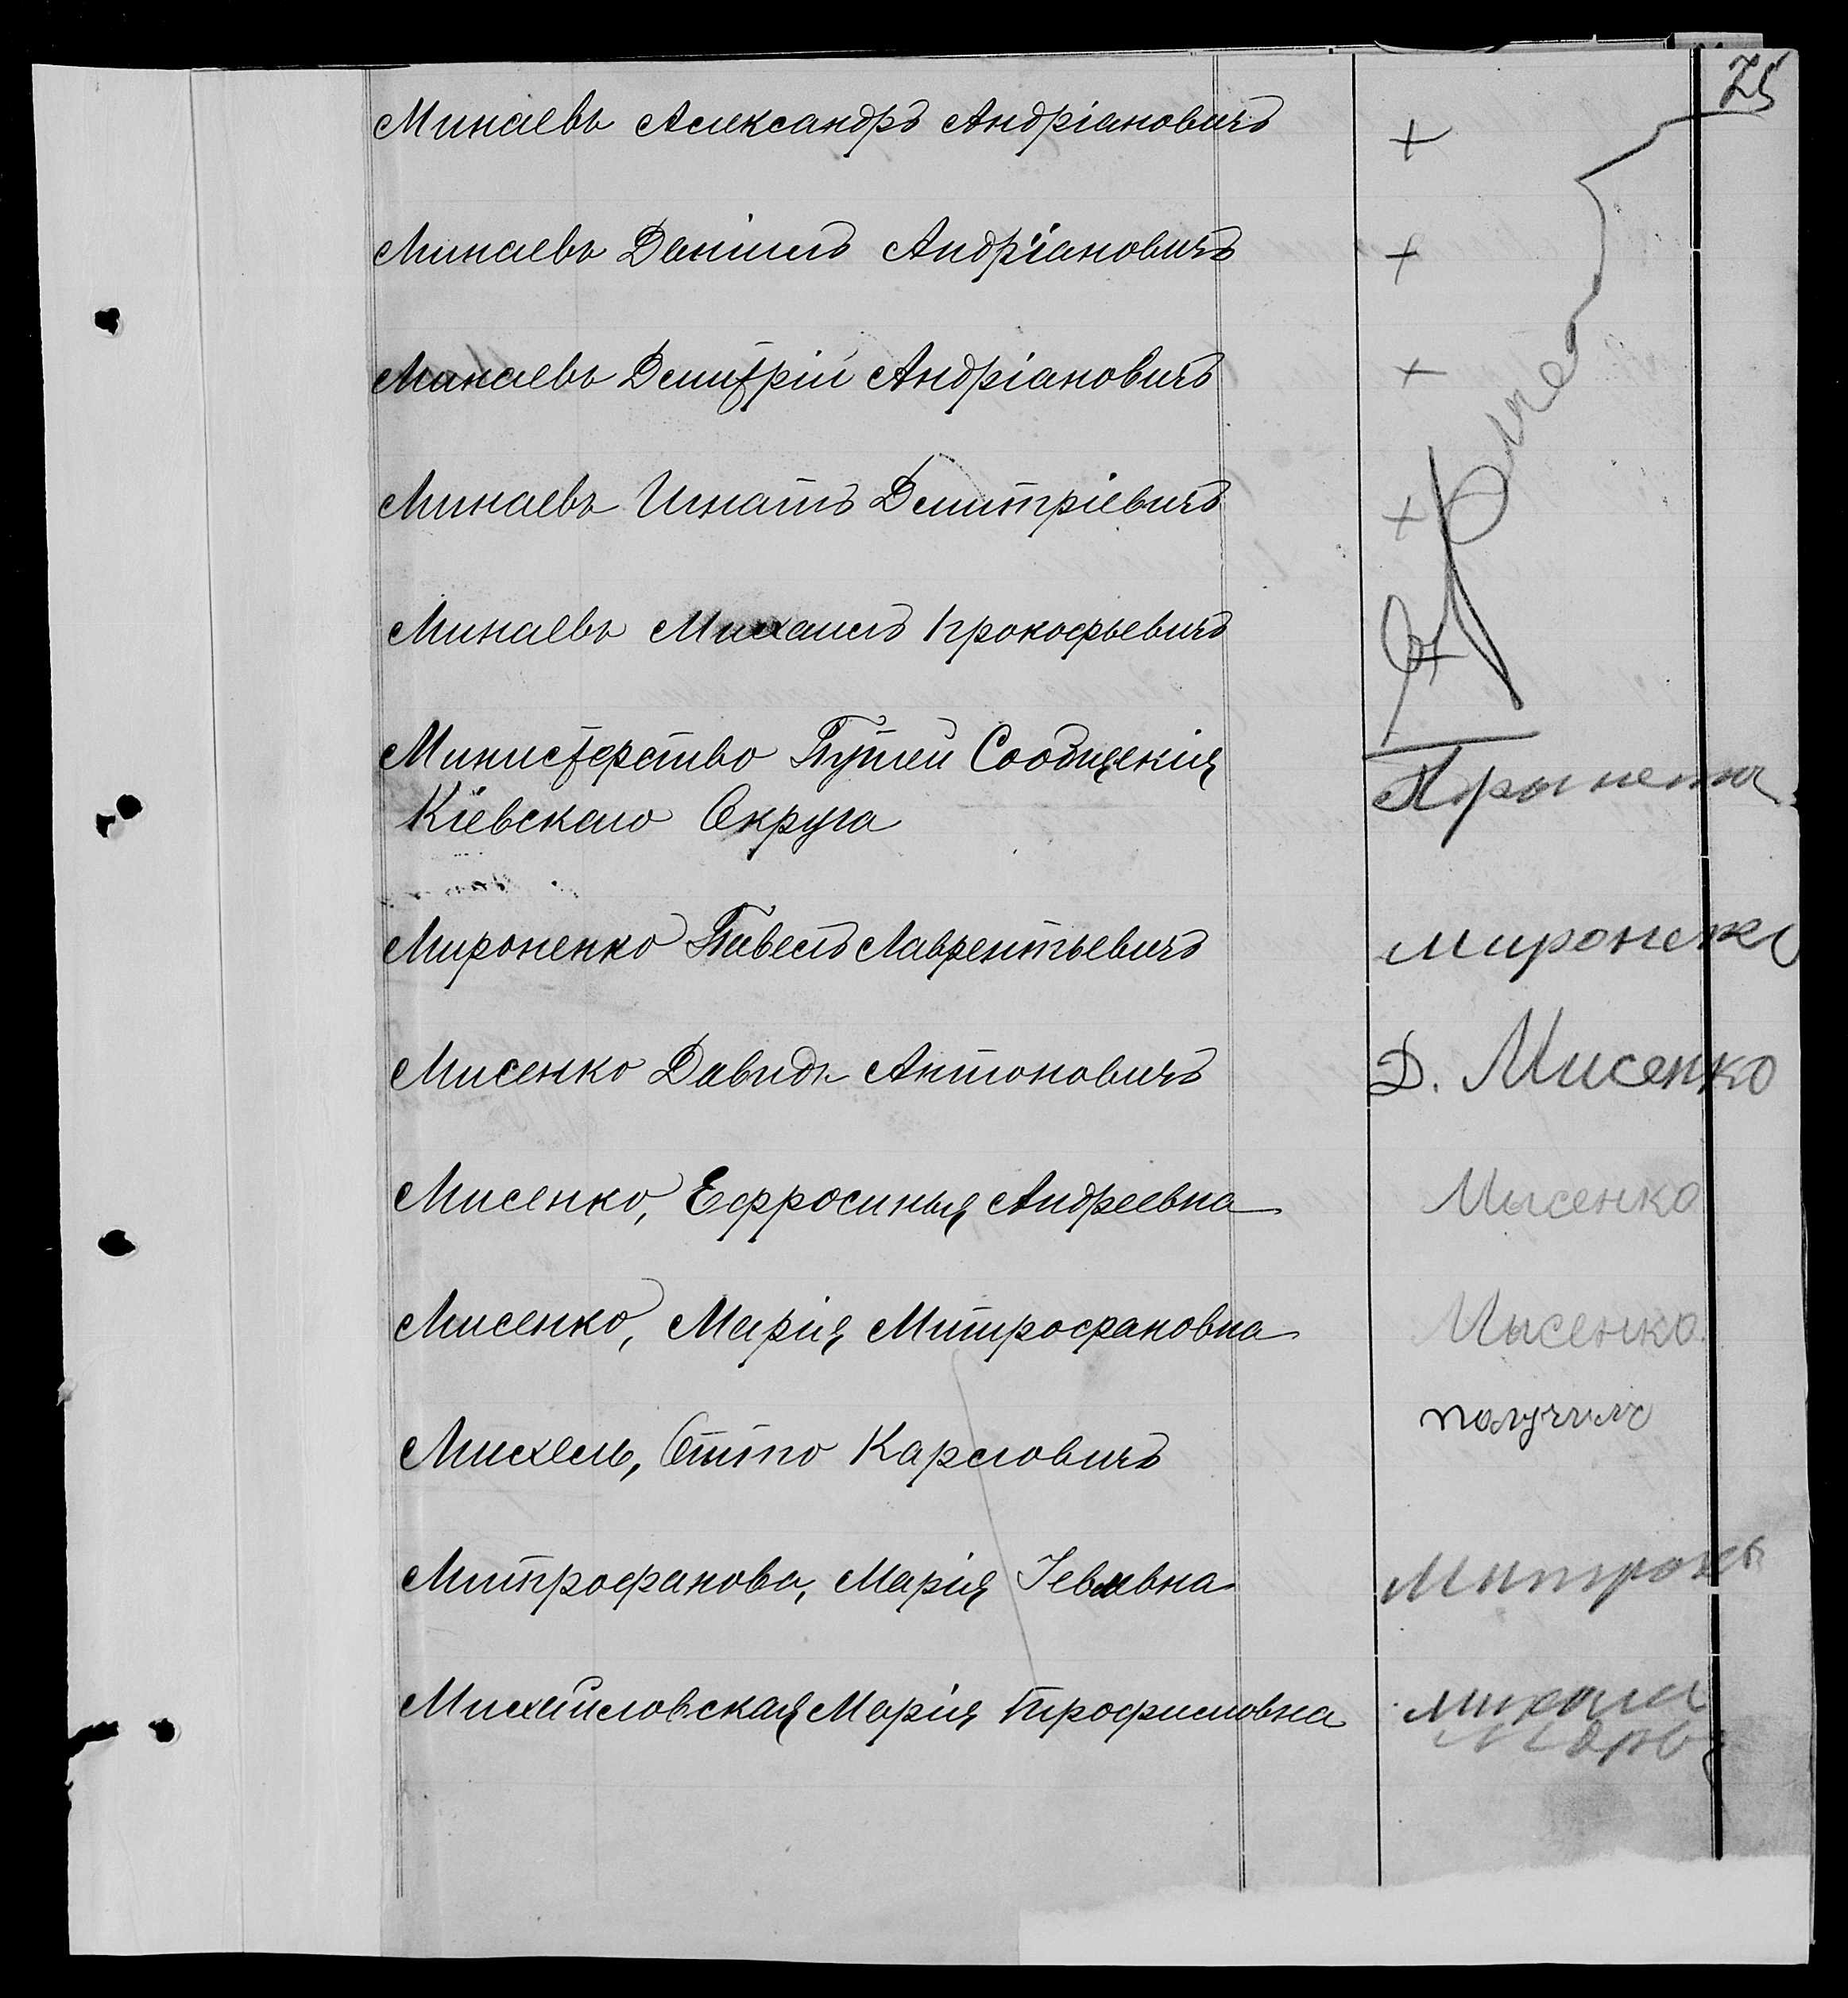 75
Минаевъ Александръ Андріановичъ +
Минаевъ Даніилъ Андріановичъ +
Минаевъ Дмитрій Андріановичъ +
Минаевъ Игнатъ Дмитріевичъ +
Минаевъ Михаилъ Прокофьевичъ +
Министерство Путей Сообщенія
Кіевскаго Округа
Мироненко Павелъ Лаврентьевичъ Мироненко
Мисенко Давидъ Антоновичъ Д. Мисенко
Мисенко, Ефросинья Андреевна Мысенко
Мисенко, Марія Митрофановна Мысенко
Михель, Отто Карловичъ получилъ
Митрофанова, Марія Іевлевна
Михайловская Марія Трофимовна